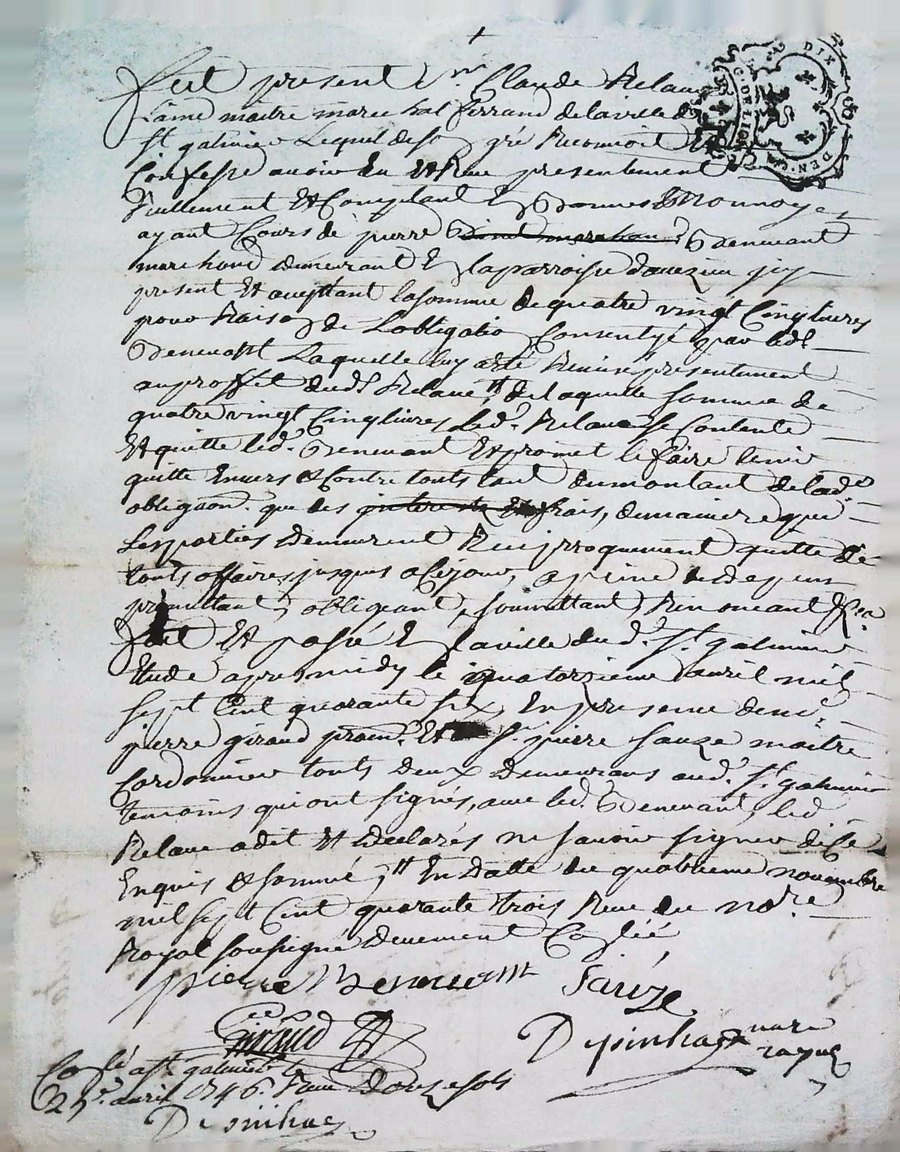 fut présent Sr. Claude Relave
Lainé maitre marechal ferrand de la ville de
St galmier Lequel de son gré Reconnoit et
Confesse avoir Eu et Receu presentement
Reellement et Comptant En Bonnes Monnoyes
ayant Cours de pierre Benevant
marchand demeurant En la parroisse d'aveizieu ycy
present et aceptant la somme de quatre vingt Cinq livres
pour Raison de Lobligation Consentye par led.
Benevant Laquelle luy a eté Remise presentement
au proffit dud. Relave, # de laquelle somme de
quatre vingt Cinq livres Led. Relave se Contente
Et quitte led. Benevant Et promet le faire tenir
quitte Envers et Contre touts tant du montant de lad.
obligaon. que des interests et frais, de maniere que
Les parties demeurent Reciproquement quitte de
touts affaires jusques a Ce jour, a peine des depens
promettant, obligeant, soumettant, Renonceant &ca
fait Et passé En la ville dud. St. galmier
Etude apres midy le quatorzieme avril mil
sept Cent quarante six, En presence de me.
pierre giraud Et Sr. pierre sauze maitre
Cordonnier touts deux demeurans aud. St. galmier
temoins qui ont signés, avec led. Benevant, led.
Relave a dit et declarés ne savoir signer de Ce
Enquis et sommé, # En datte du quatrieme novembre
mil sept Cent quarante trois Receu du nore.
Royal soussigné deuement Coñlé
pierre Benevant Sauze
Giraud
Depinhac nore royal
Coñlé a St galmier le
25e. avril 1746. Receu douze sols
Depinhac
G. DE LION
DIX DEN.